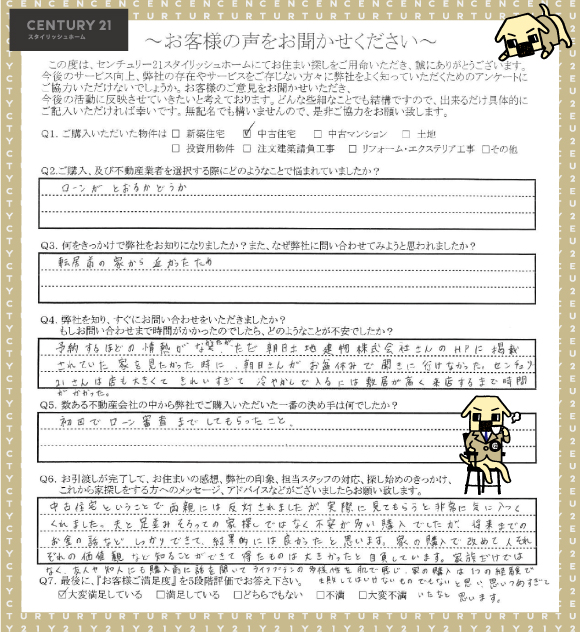 CENTURY 21
スタイリッシュホーム
～お客様の声をお聞かせください～
この度は、センチュリー21スタイリッシュホームにてお住まい探しをご用命いただき、誠にありがとうございます。
今後のサービス向上、弊社の存在やサービスをご存じない方々に弊社をよく知っていただくためのアンケートに
ご協力いただけないでしょうか。お客様のご意見をお聞かせいただき、
今後の活動に反映させていきたいと考えております。どんな些細なことでも結構ですので、出来るだけ具体的に
ご記入いただければ幸いです。無記名でも構いませんので、是非ご協力をお願い致します。
Q1. ご購入いただいた物件は □ 新築住宅 ☑ 中古住宅 □ 中古マンション □ 土地
□ 投資用物件 □ 注文建築請負工事 □ リフォーム・エクステリア工事 □その他
Q2.ご購入、及び不動産業者を選択する際にどのようなことで悩まれていましたか？
ローンが とおるかどうか
Q3. 何をきっかけで弊社をお知りになりましたか？また、なぜ弊社に問い合わせてみようと思われましたか？
転居前の家から近かったため
Q4. 弊社を知り、すぐにお問い合わせをいただきましたか？
もしお問い合わせまで時間がかかったのでしたら、どのようなことが不安でしたか？
予約するほどの情熱がなかったが ただ 朝日土地建物株式会社さんのHPに掲載
されていた家を見たかった時に、朝日さんがお盆休みで聞きに行けなかった。センチュリー
21さんは店も大きくて きれいすぎて 冷やかしで入るには敷居が高く来店するまで時間
がかかった。
Q5. 数ある不動産会社の中から弊社でご購入いただいた一番の決め手は何でしたか？
初回でローン審査までしてもらったこと。
Q6. お引渡しが完了して、お住まいの感想、弊社の印象、担当スタッフの対応、探し始めのきっかけ、
これから家探しをする方へのメッセージ、アドバイスなどがございましたらお願い致します。
中古住宅ということで両親には反対されましたが実際に見てもらうと非常に気に入って
くれました。夫と足並みそろっての家探しではなく不安が多い購入でしたが、将来までの
お金の話など しっかりできて、結果的には良かったと思います。家の購入で改めて人それ
ぞれの価値観など知ることができて得たものは大きかったと自負しています。家族だけでは
なく、友人や知人にも購入前に話を聞いてライフプランの多様性を肌で感じ、家の購入は1つの経験で
失敗してはいけないものでもないと思い、思いつめすぎて
いたなと思います。
Q7. 最後に、『お客様ご満足度』を5段階評価でお答え下さい。
☑大変満足している □満足している □どちらでもない □不満 □大変不満